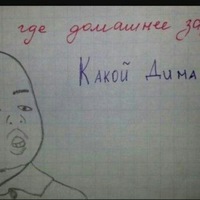 где домашнее за
Какой Дима